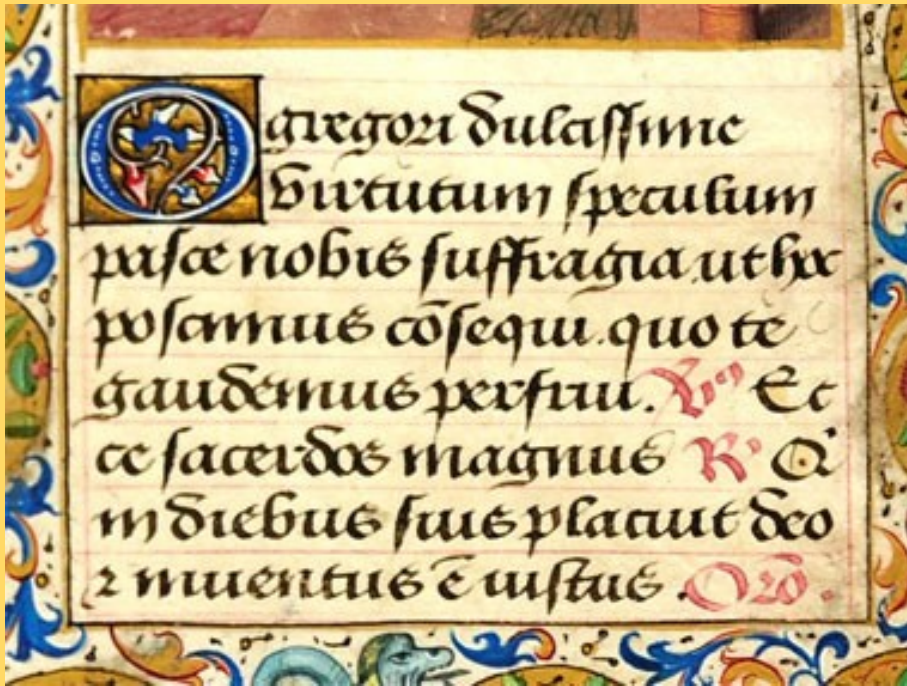 O gregori dulcissime
virtutum speculum
pasce nobis suffragia ut hoc
poscimus cōsequi. quo te
gaudemus perfrui. V Ec
ce sacerdos magnus R Q
in diebus suis placuit deo
⁊ inuentus ē iustus. Orō.